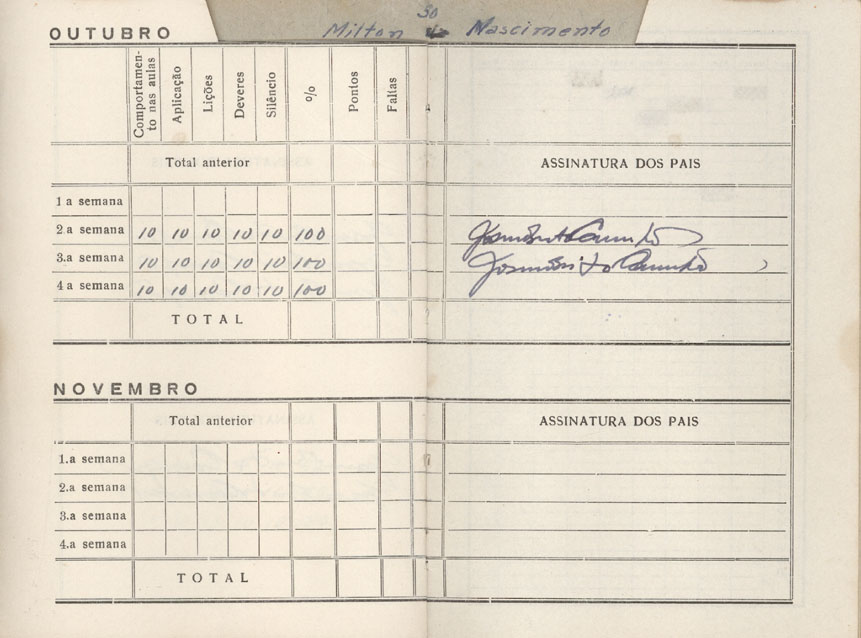 30
OUTUBRO Milton Nascimento
Comportamen-
to nas aulas
Aplicação
Lições
Deveres
Silêncio
%
Pontos
Faltas
Total anterior ASSINATURA DOS PAIS
1 a semana
2.a semana 10 10 10 10 10 100
3.a semana 10 10 10 10 10 100
4 a semana 10 10 10 10 10 100
TOTAL
NOVEMBRO
Total anterior ASSINATURA DOS PAIS
1.a semana
2.a semana
3.a semana
4.a semana
TOTAL